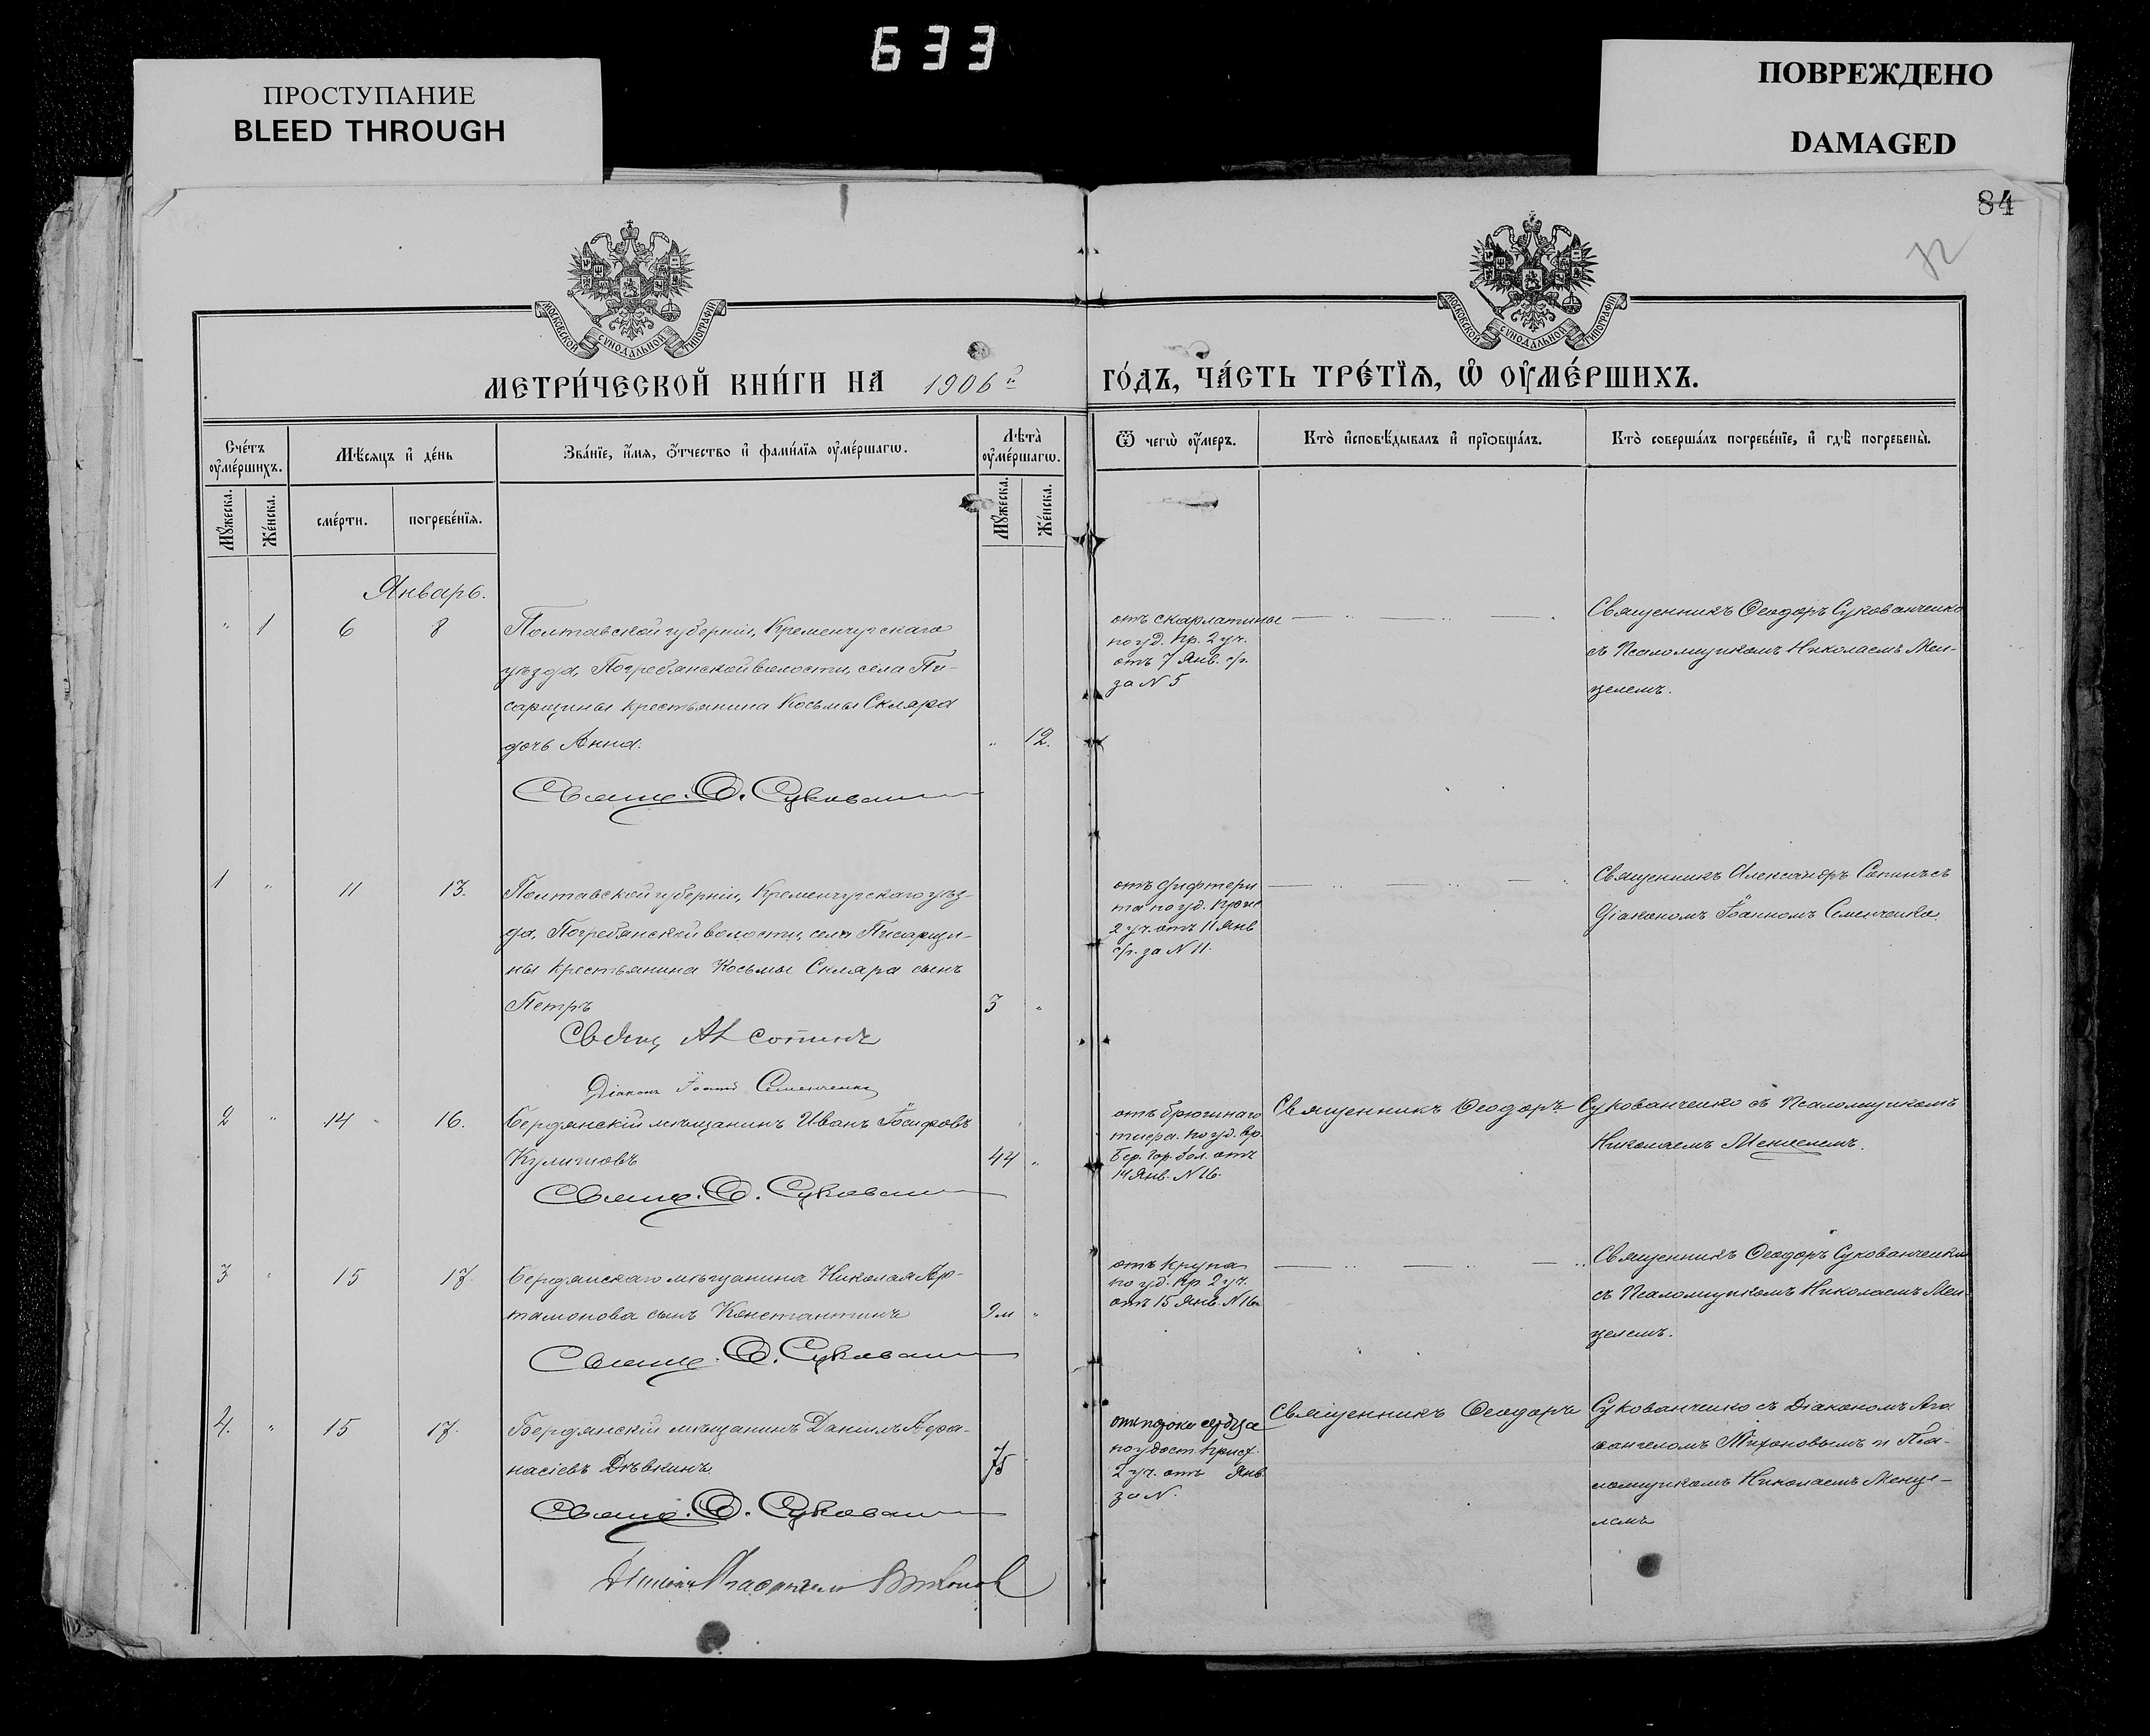 633
ПРОСТУПАНИЕ
BLEED THROUGH
ПОВРЕЖДЕНО
DAMAGED
84
МОСКОВСКОЙ СѴНОДАЛЬНОЙ ТИПОГРАФІИ
МОСКОВСКОЙ СѴНОДАЛЬНОЙ ТИПОГРАФІИ
МЕТРИ́ЧЕСКОЙ КНИ́ГИ НА 1906 г.
ГО́ДЪ, ЧА́СТЬ ТРЕ́ТЇѦ, Ѡ ОУ҆МЕ́РШИХЪ.
Сче́тъ оу҆ме́ршихъ.
Мѣ́сяцъ и҆ де́нь
Зва́нїе, и҆́мя, о҆́тчество и҆ фами́лїя оу҆ме́ршагѡ.
Лѣ́та оу҆ме́ршагѡ.
Ѿ чегѡ̀ оу҆́меръ.
Кто̀ и҆сповѣ́дывалъ и҆ прїѡбща́лъ.
Кто̀ соверша́лъ погребе́нїе, и҆ гдѣ̀ погребены̀.
Мꙋ́жеска.
Же́нска.
сме́рти.
погребе́нїя.
Мꙋ́жеска.
Же́нска.
Январь.
" 1 6 8 Полтавской губерніи, Кременчугскаго
уѣзда, Погребянской волости, села Пи-
сарщины крестьянина Косьмы Скляра
дочь Анна. " 12.
Свящ. Ѳ. Сукован
отъ скарлатины
по уд. вр. 2 уч.
отъ 7 Янв. с/г.
за N 5
Священникъ Ѳеодоръ Сукованченко
съ Псаломщикомъ Николаемъ Мен-
целемъ.
1 " 11 13. Полтавской губерніи, Кременчугскаго уѣз-
да, Погребянской волости, села Писарщи-
ны крестьянина Косьмы Скляра сынъ
Петръ 3 "
Свящ Ал Сопинъ
Діаконъ Іоаннъ Семенченко
отъ дифтери
та по уд.
2 уч. отъ 11 Янв
с/г. за N 11.
Священникъ Александръ Сопинъ съ
Діакономъ Іоанномъ Семенченко.
2 " 14 16. Бердянскій мѣщанинъ Иванъ Іосифовъ
44 "
Свящ. Ѳ. Сукован
отъ брюшнаго
тифа. по уд. вр.
Бер. Гор. бол. отъ
14 Янв. N 16.
Священникъ Ѳеодоръ Сукованченко съ Псаломщикомъ
Николаемъ Менцелемъ.
3 " 15 17. Бердянскаго мѣщанина Николая Ар-
тамонова сынъ Константинъ 9 м "
Свящ. Ѳ. Сукован
отъ крупа
по уд. вр. 2 уч.
отъ 15 Янв. N 16
Священникъ Ѳеодоръ Сукованченко
съ Псаломщикомъ Николаемъ Мен-
целемъ.
4. " 15 17. Бердянскій мѣщанинъ Даніилъ Афа-
насіевъ Дѣвкинъ. 75
Свящ. Ѳ. Сукован
отъ порока сердца
по удост.
2 уч. отъ Янв.
за N.
Священникъ Ѳеодоръ Сукованченко съ Діакономъ Ага
ѳангеломъ и Пса-
ломщикомъ Николаемъ Менце-
лемъ